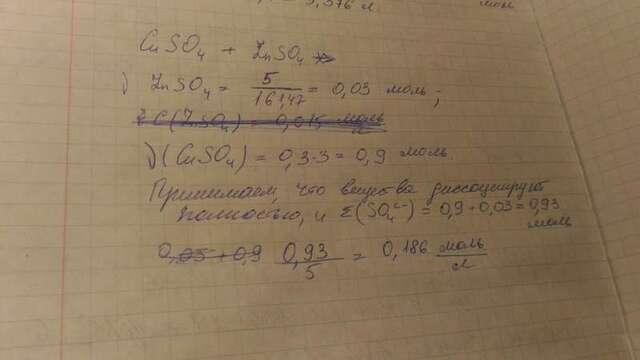 3,376 л
моль
CuSO₄ + ZnSO₄
ν) ZnSO₄ = 5/161,47 = 0,03 моль;
C(ZnSO₄) = 0,015 моль/л
ν(CuSO₄) = 0,3·3 = 0,9 моль.
Принимаем, что вещества диссоциируют
полностью, и Σ(SO₄²⁻) = 0,9 + 0,03 = 0,93
моль
0,05 + 0,9 0,93/5 = 0,186 моль/л